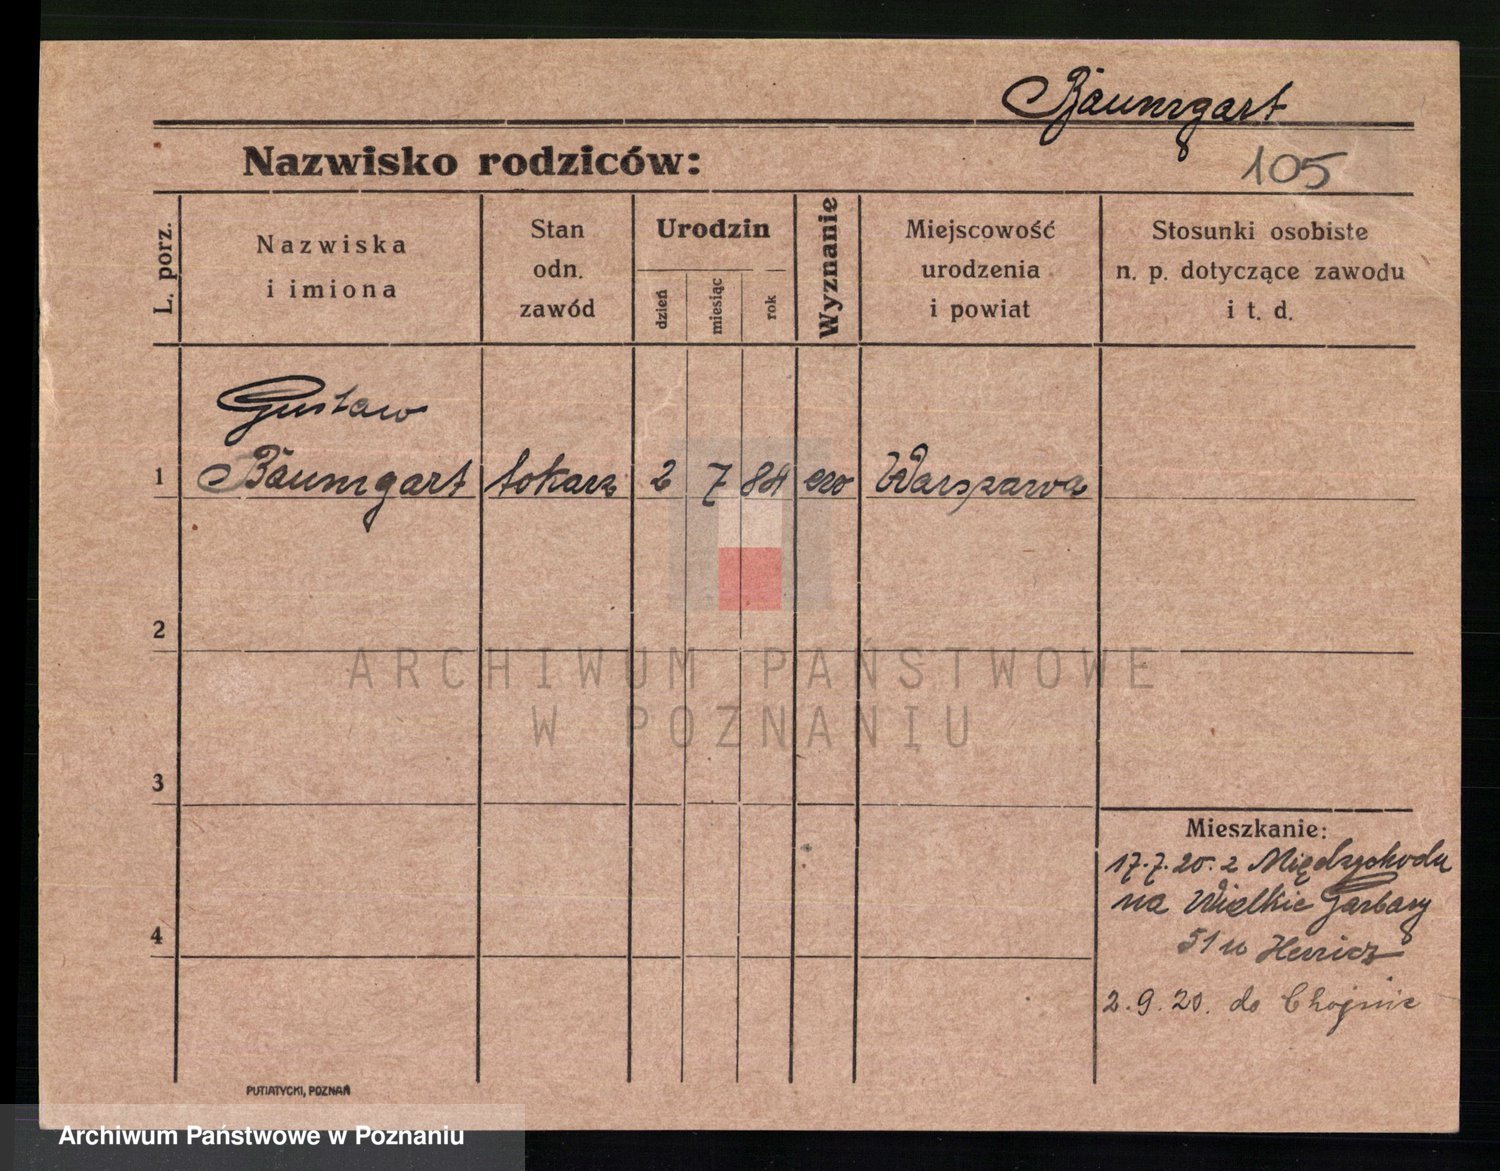 Baumgart
Nazwisko rodziców:
105
L. porz.
Nazwiska
i imiona
Stan
odn.
zawód
Urodzin
dzień
miesiąc
rok
Wyznanie
Miejscowość
urodzenia
i powiat
Stosunki osobiste
n. p. dotyczące zawodu
i t. d.
Gustaw
1 Baumgart tokarz 2 7 84 ew Warszawa
2
3
4
Mieszkanie:
17.7.20. z Międzychodu
na Wielkie Garbary
51 u
2.9.20. do Chojnic
PUTIATYCKI, POZNAŃ
ARCHIWUM PAŃSTWOWE
W POZNANIU
Archiwum Państwowe w Poznaniu